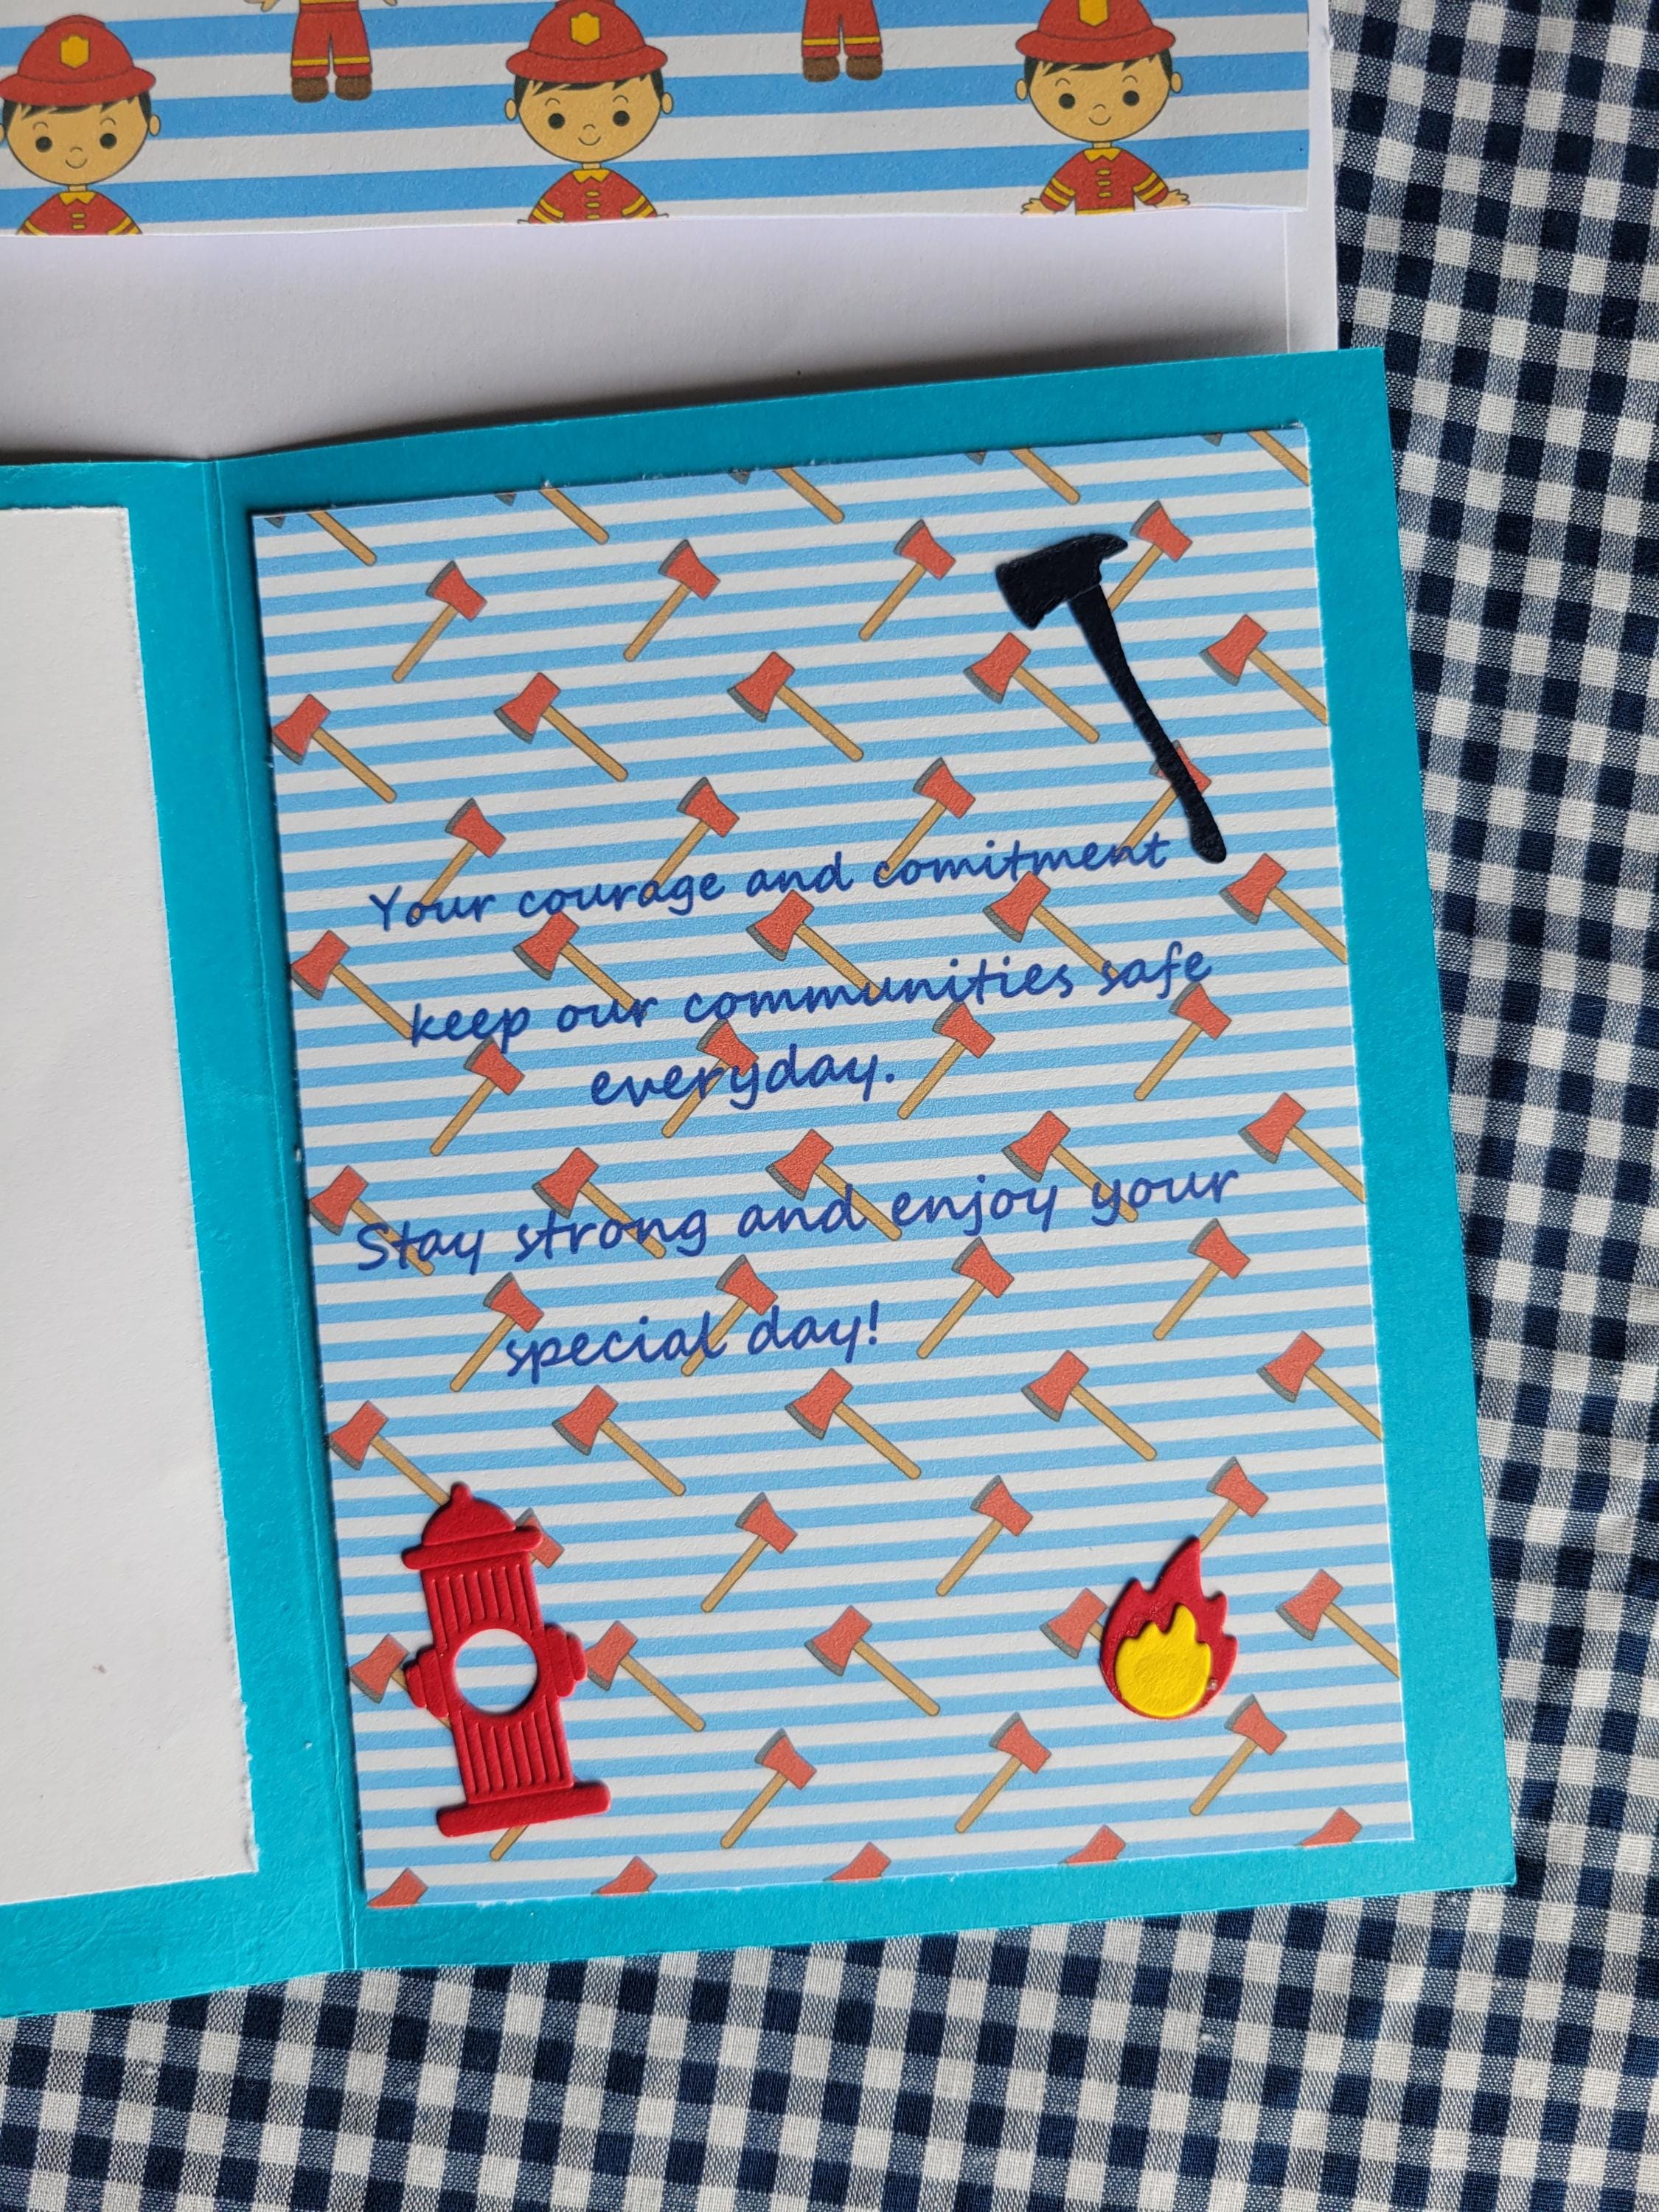 Your courage and comitment
keep our communities safe
everyday.
Stay strong and enjoy your
special day!